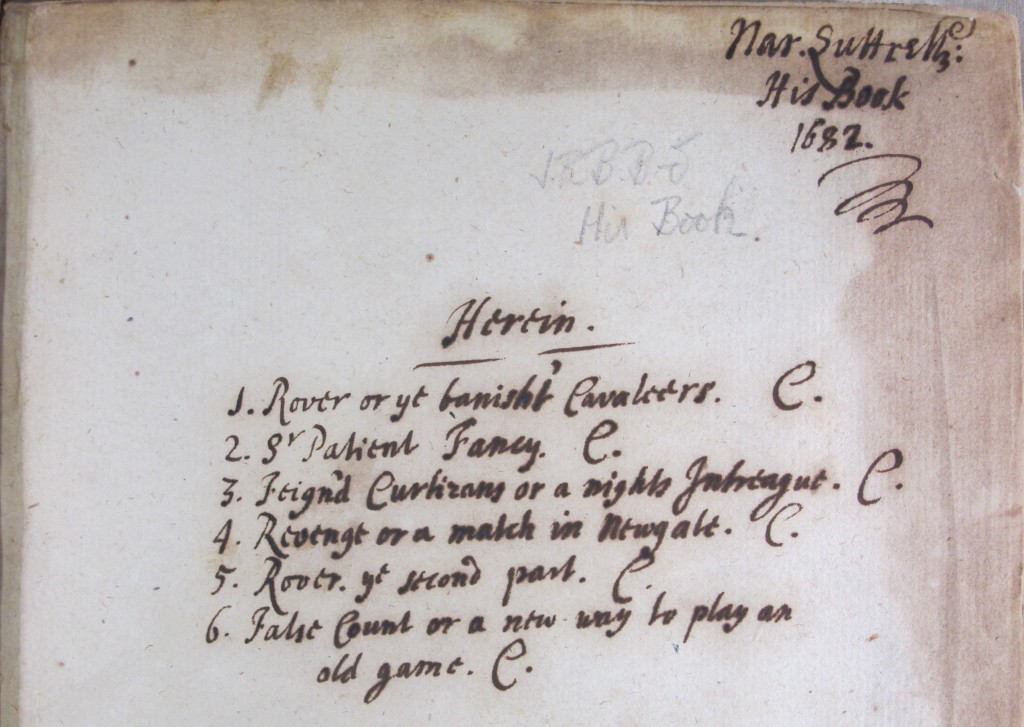 Nar. Luttrell:
His Book
1682.
His Book.
Herein.
1. Rover or ye banisht Cavaleers. C.
2. Sr Patient Fancy. C.
3. Feign'd Curtizans or a nights Intreague. C.
4. Revenge or a match in Newgate. C.
5. Rover. ye second part. C.
6. False Count or a new way to play an
old game. C.